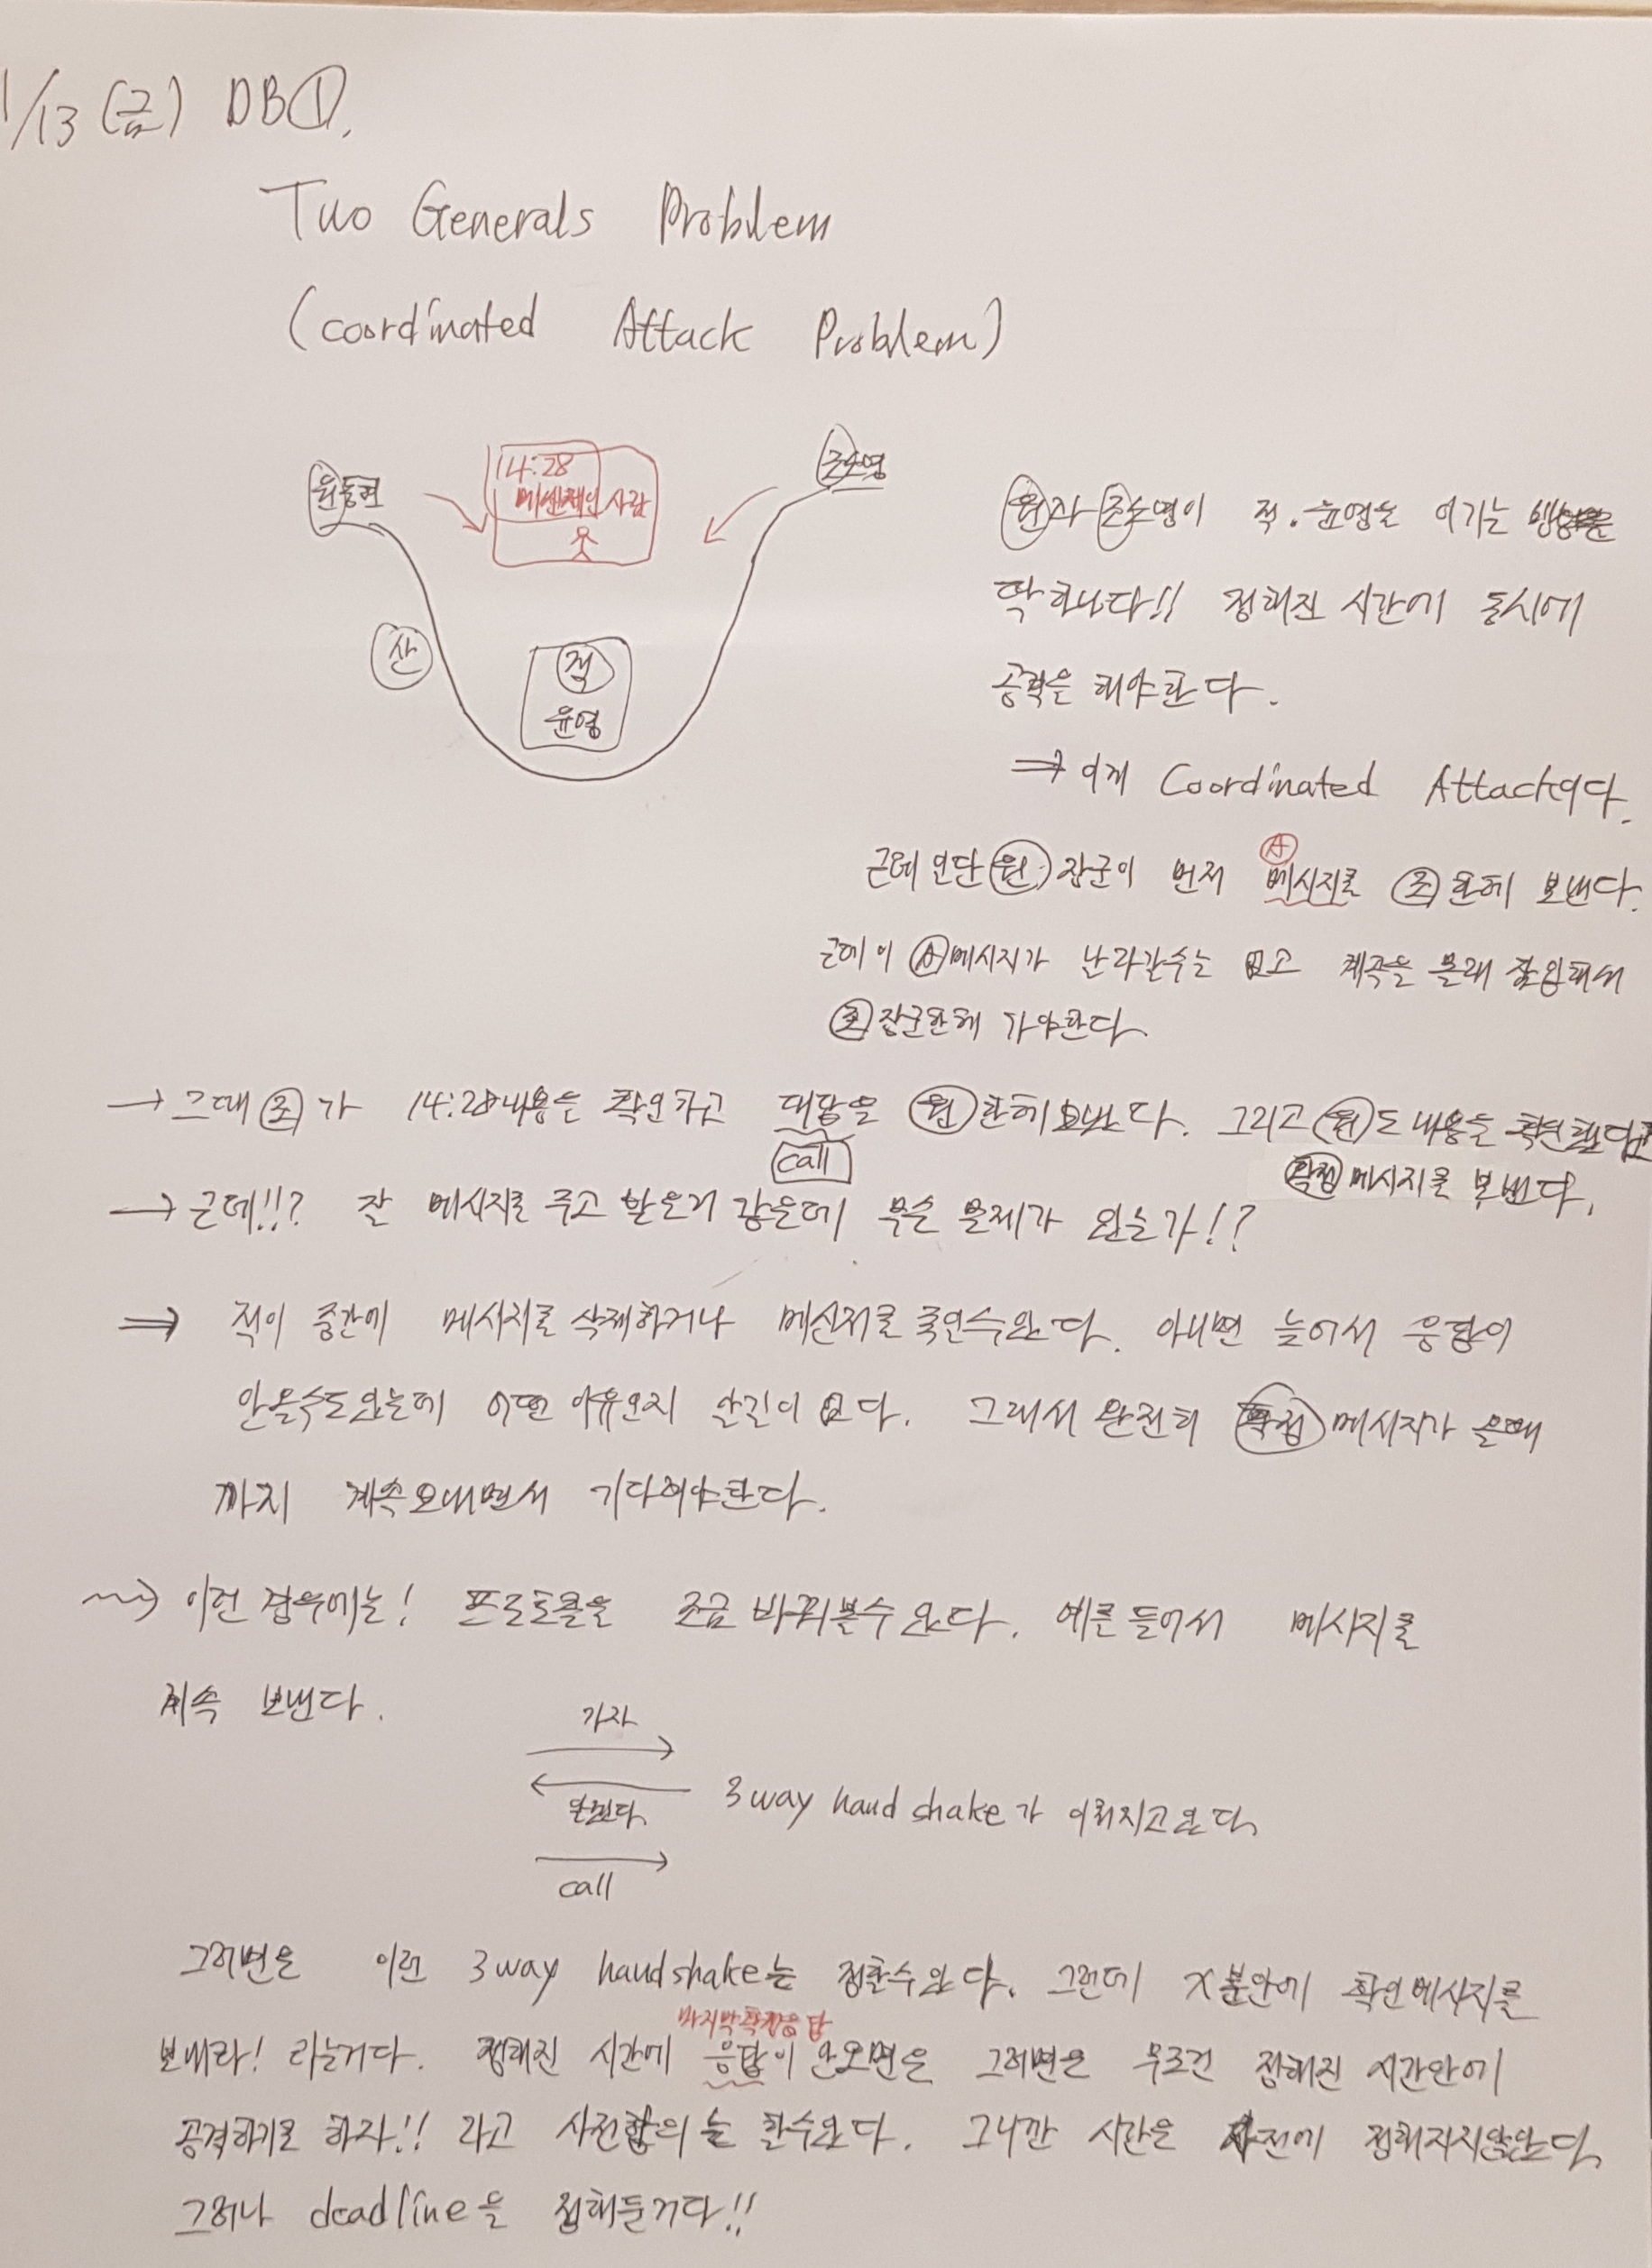 1/13 (금) DB①.
Two Generals Problem
(coordinated Attack Problem)
14:28
메신저인 사람
산
적
윤영
원과 조소영이 적. 윤영을 이기는 방법은
딱 하나다!! 정해진 시간에 동시에
공격을 해야한다.
⇒ 이게 Coordinated Attack이다.
A
근데 일단 원 장군이 먼저 메시지를 조 한테 보낸다.
근데 이 A 메시지가 날라갈수는 없고 계곡을 몰래 잠입해서
조 장군한테 가야한다.
→ 그때 조가 14:28내용을 확인하고 대답을 원 한테 보낸다. 그리고 원도 내용을 확인했다고
call
확정 메시지를 보낸다.
→ 근데!!? 잘 메시지를 주고 받은거 같은데 무슨 문제가 있는가!?
⇒ 적이 중간에 메시지를 삭제하거나 메신저를 죽일수있다. 아니면 늦어서 응답이
안올수도있는데 어떤 이유인지 알길이 없다. 그래서 완전히 확정 메시지가 올때
까지 계속보내면서 기다려야한다.
~> 이런 경우에는! 프로토콜을 조금 바꿔볼수 있다. 예를 들어서 메시지를
계속 보낸다.
가자
알겠다
3way hand shake가 이뤄지고있다.
call
그러면은 이런 3way handshake는 정할수있다. 그런데 X분안에 확인메시지를
마지막확정응답
보내라! 라는거다. 정해진 시간에 응답이 안오면은 그러면은 무조건 정해진 시간안에
공격하기로 하자!! 라고 사전합의를 할수있다. 그니깐 시간은 사전에 정해지지않았다.
그러나 deadline을 정해둔거다!!